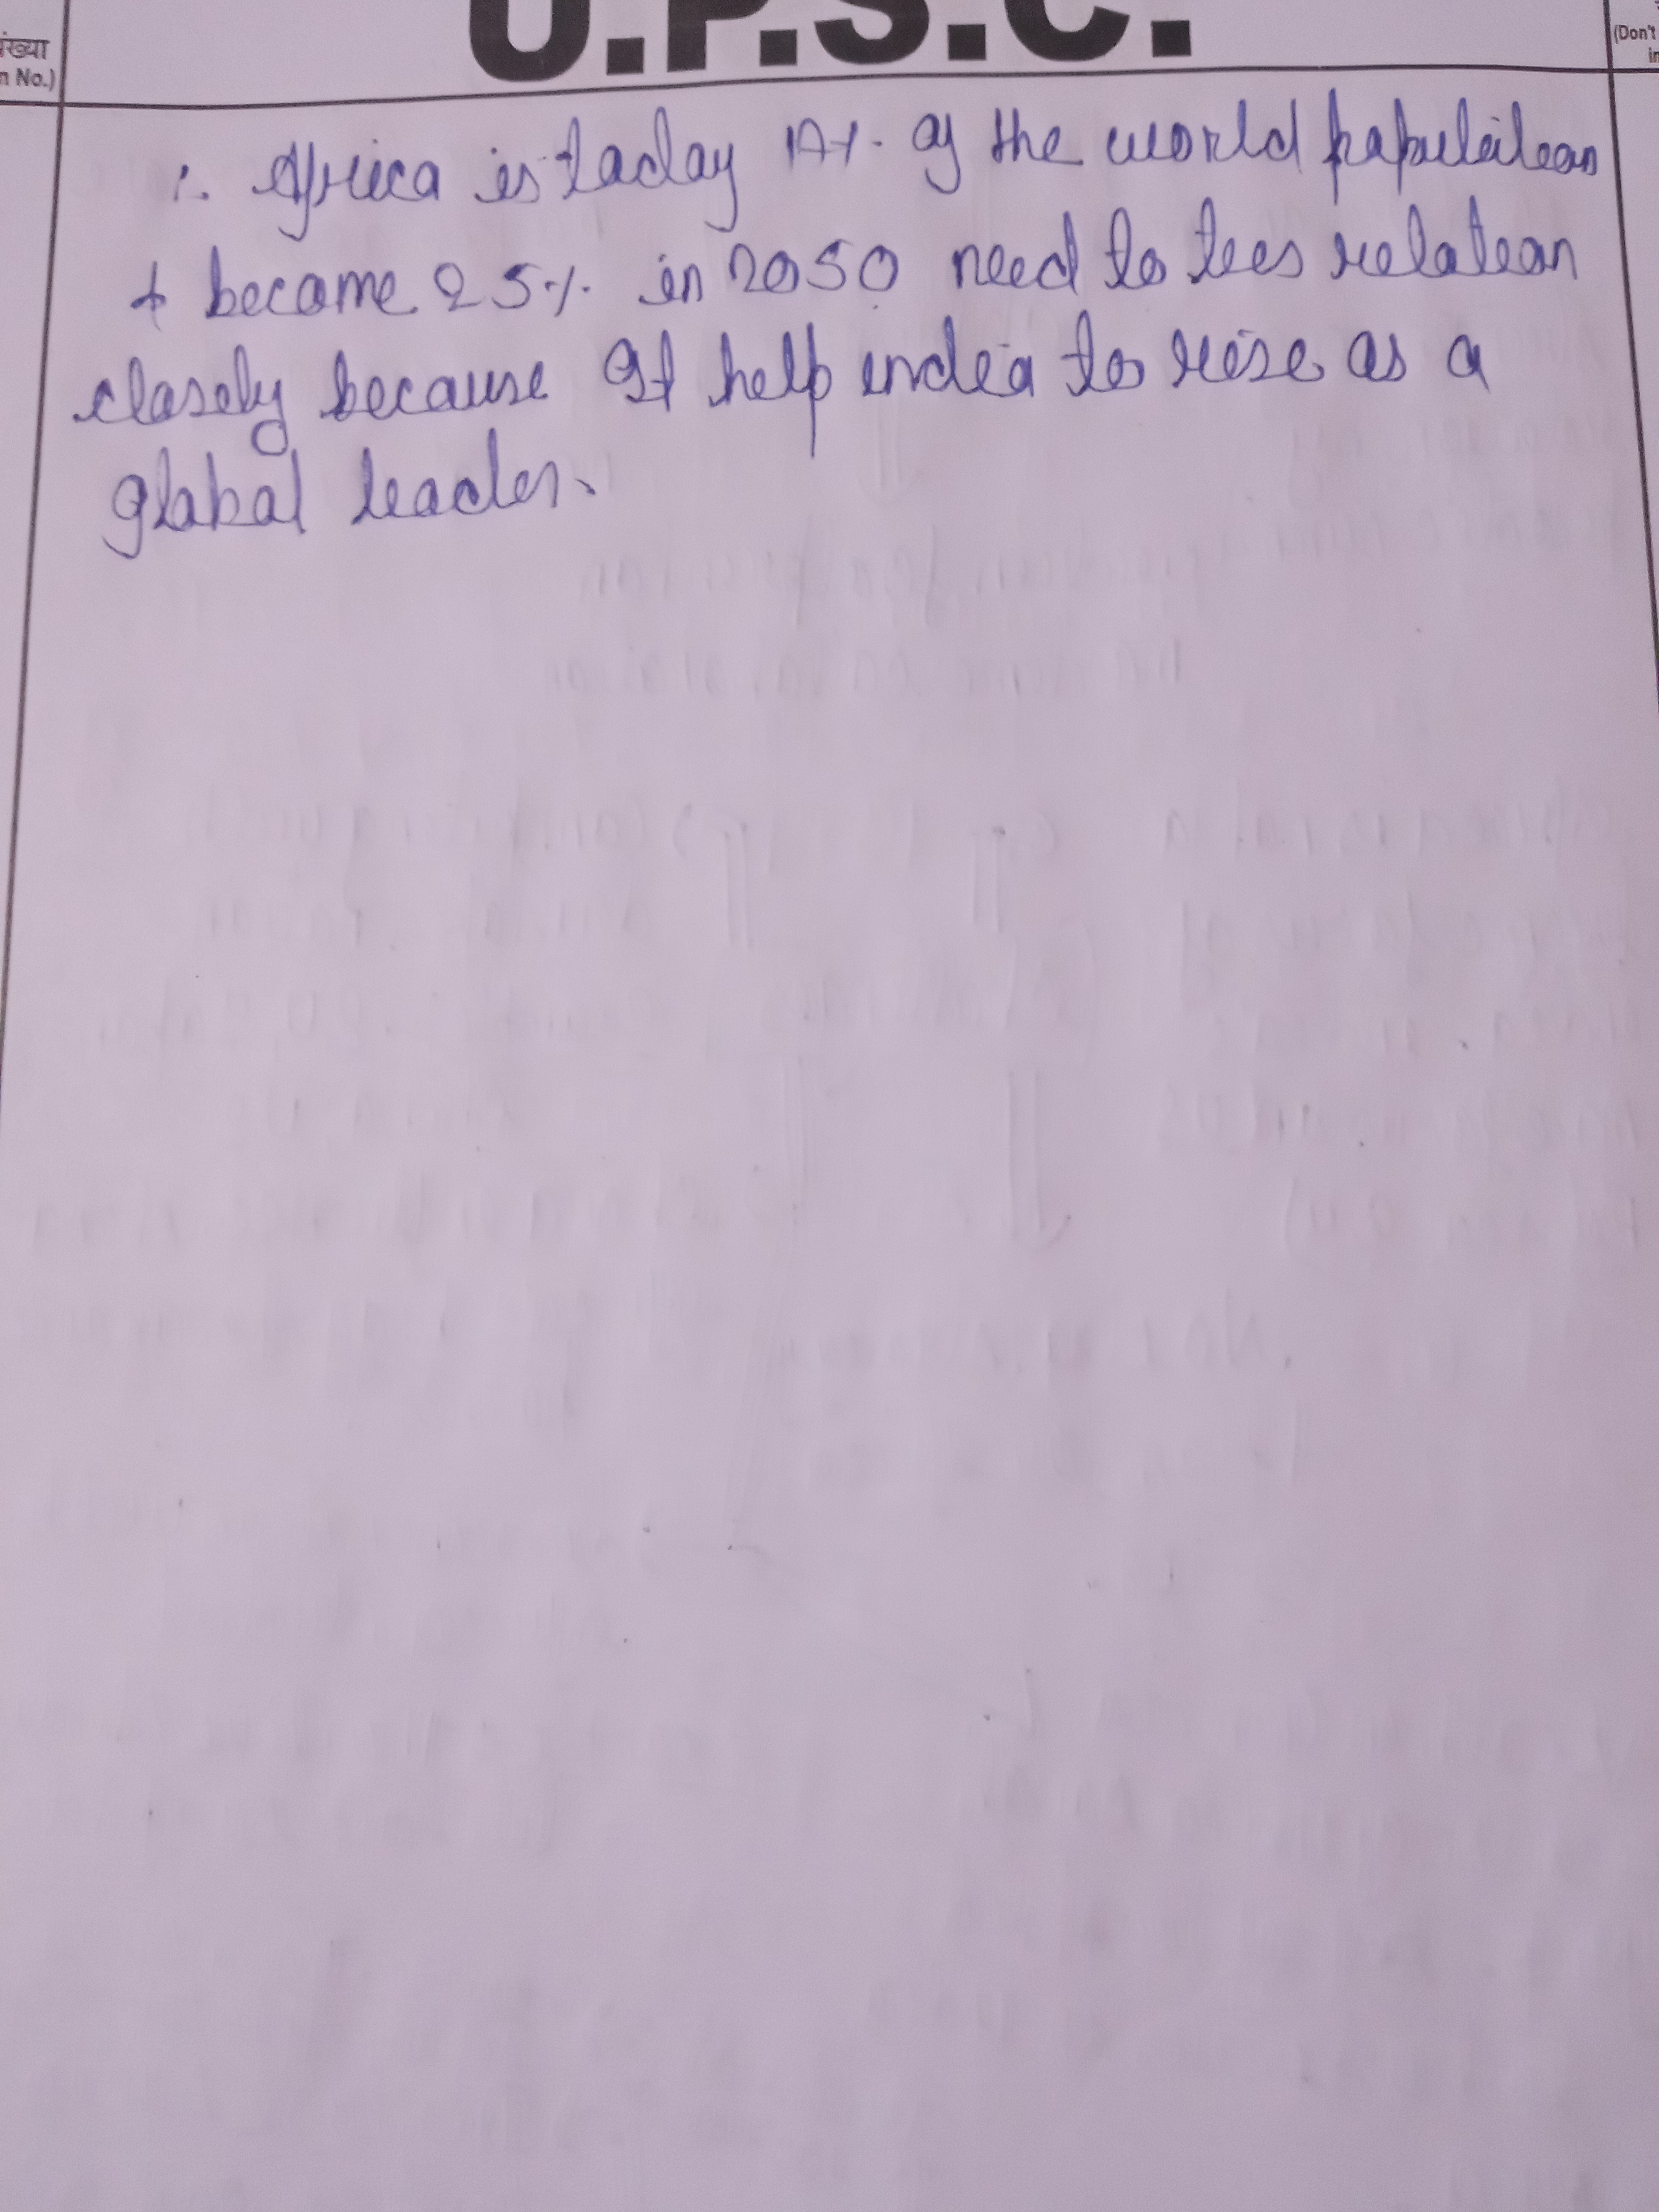 U.P.S.C.
संख्या
n No.)
(Don't
in
∴ Africa is today 17% of the world population
+ become 25% in 2050 need to ties relation
closely because It help india to rise as a
global leader.